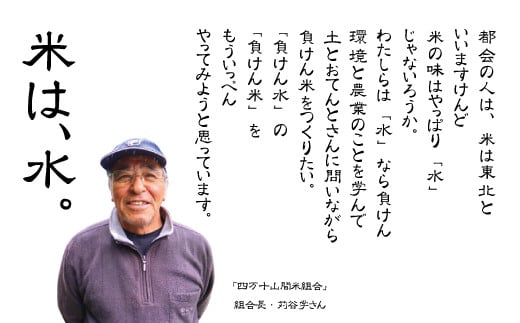 都会の人は、米は東北と
いいますけんど
米の味はやっぱり「水」
じゃないろうか。
わたしらは「水」なら負けん
環境と農業のことを学んで
土とおてんとさんに問いながら
負けん米をつくりたい。
「負けん水」の
「負けん米」を
もういっぺん
やってみようと思っています。
米は、水。
「四万十山間米組合」
組合長・苅谷学さん